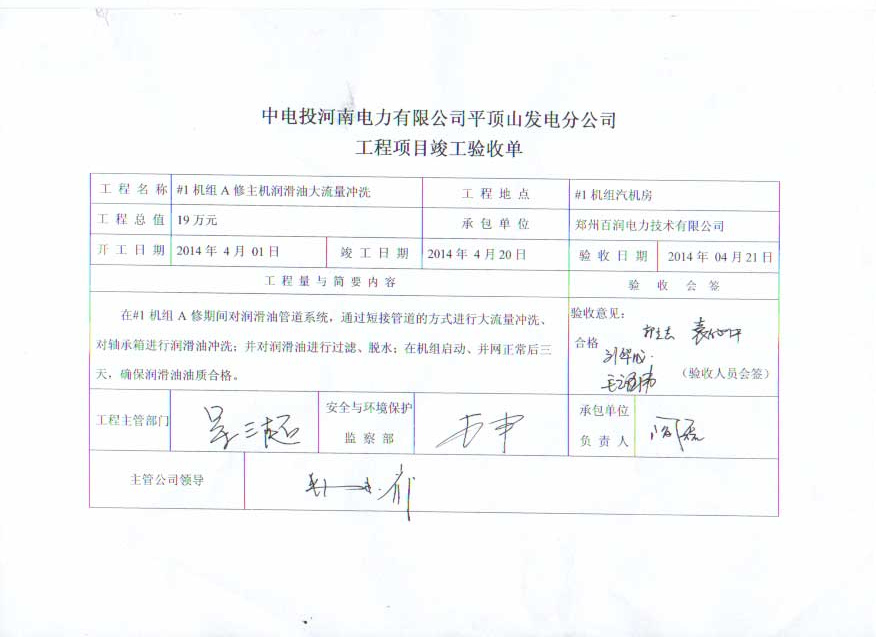 中电投河南电力有限公司平顶山发电分公司
工程项目竣工验收单
工程名称 #1 机组 A 修主机润滑油大流量冲洗 工程地点 #1 机组汽机房
工程总值 19 万元 承包单位 郑州百润电力技术有限公司
开工日期 2014 年 4 月 01 日 竣工日期 2014 年 4 月 20 日 验收日期 2014 年 04 月 21 日
工程量与简要内容 验收会签
在#1 机组 A 修期间对润滑油管道系统，通过短接管道的方式进行大流量冲洗、
对轴承箱进行润滑油冲洗；并对润滑油进行过滤、脱水；在机组启动、并网正常后三
天，确保润滑油油质合格。
验收意见：
合格
（验收人员会签）
工程主管部门
安全与环境保护
监察部
承包单位
负责人
主管公司领导